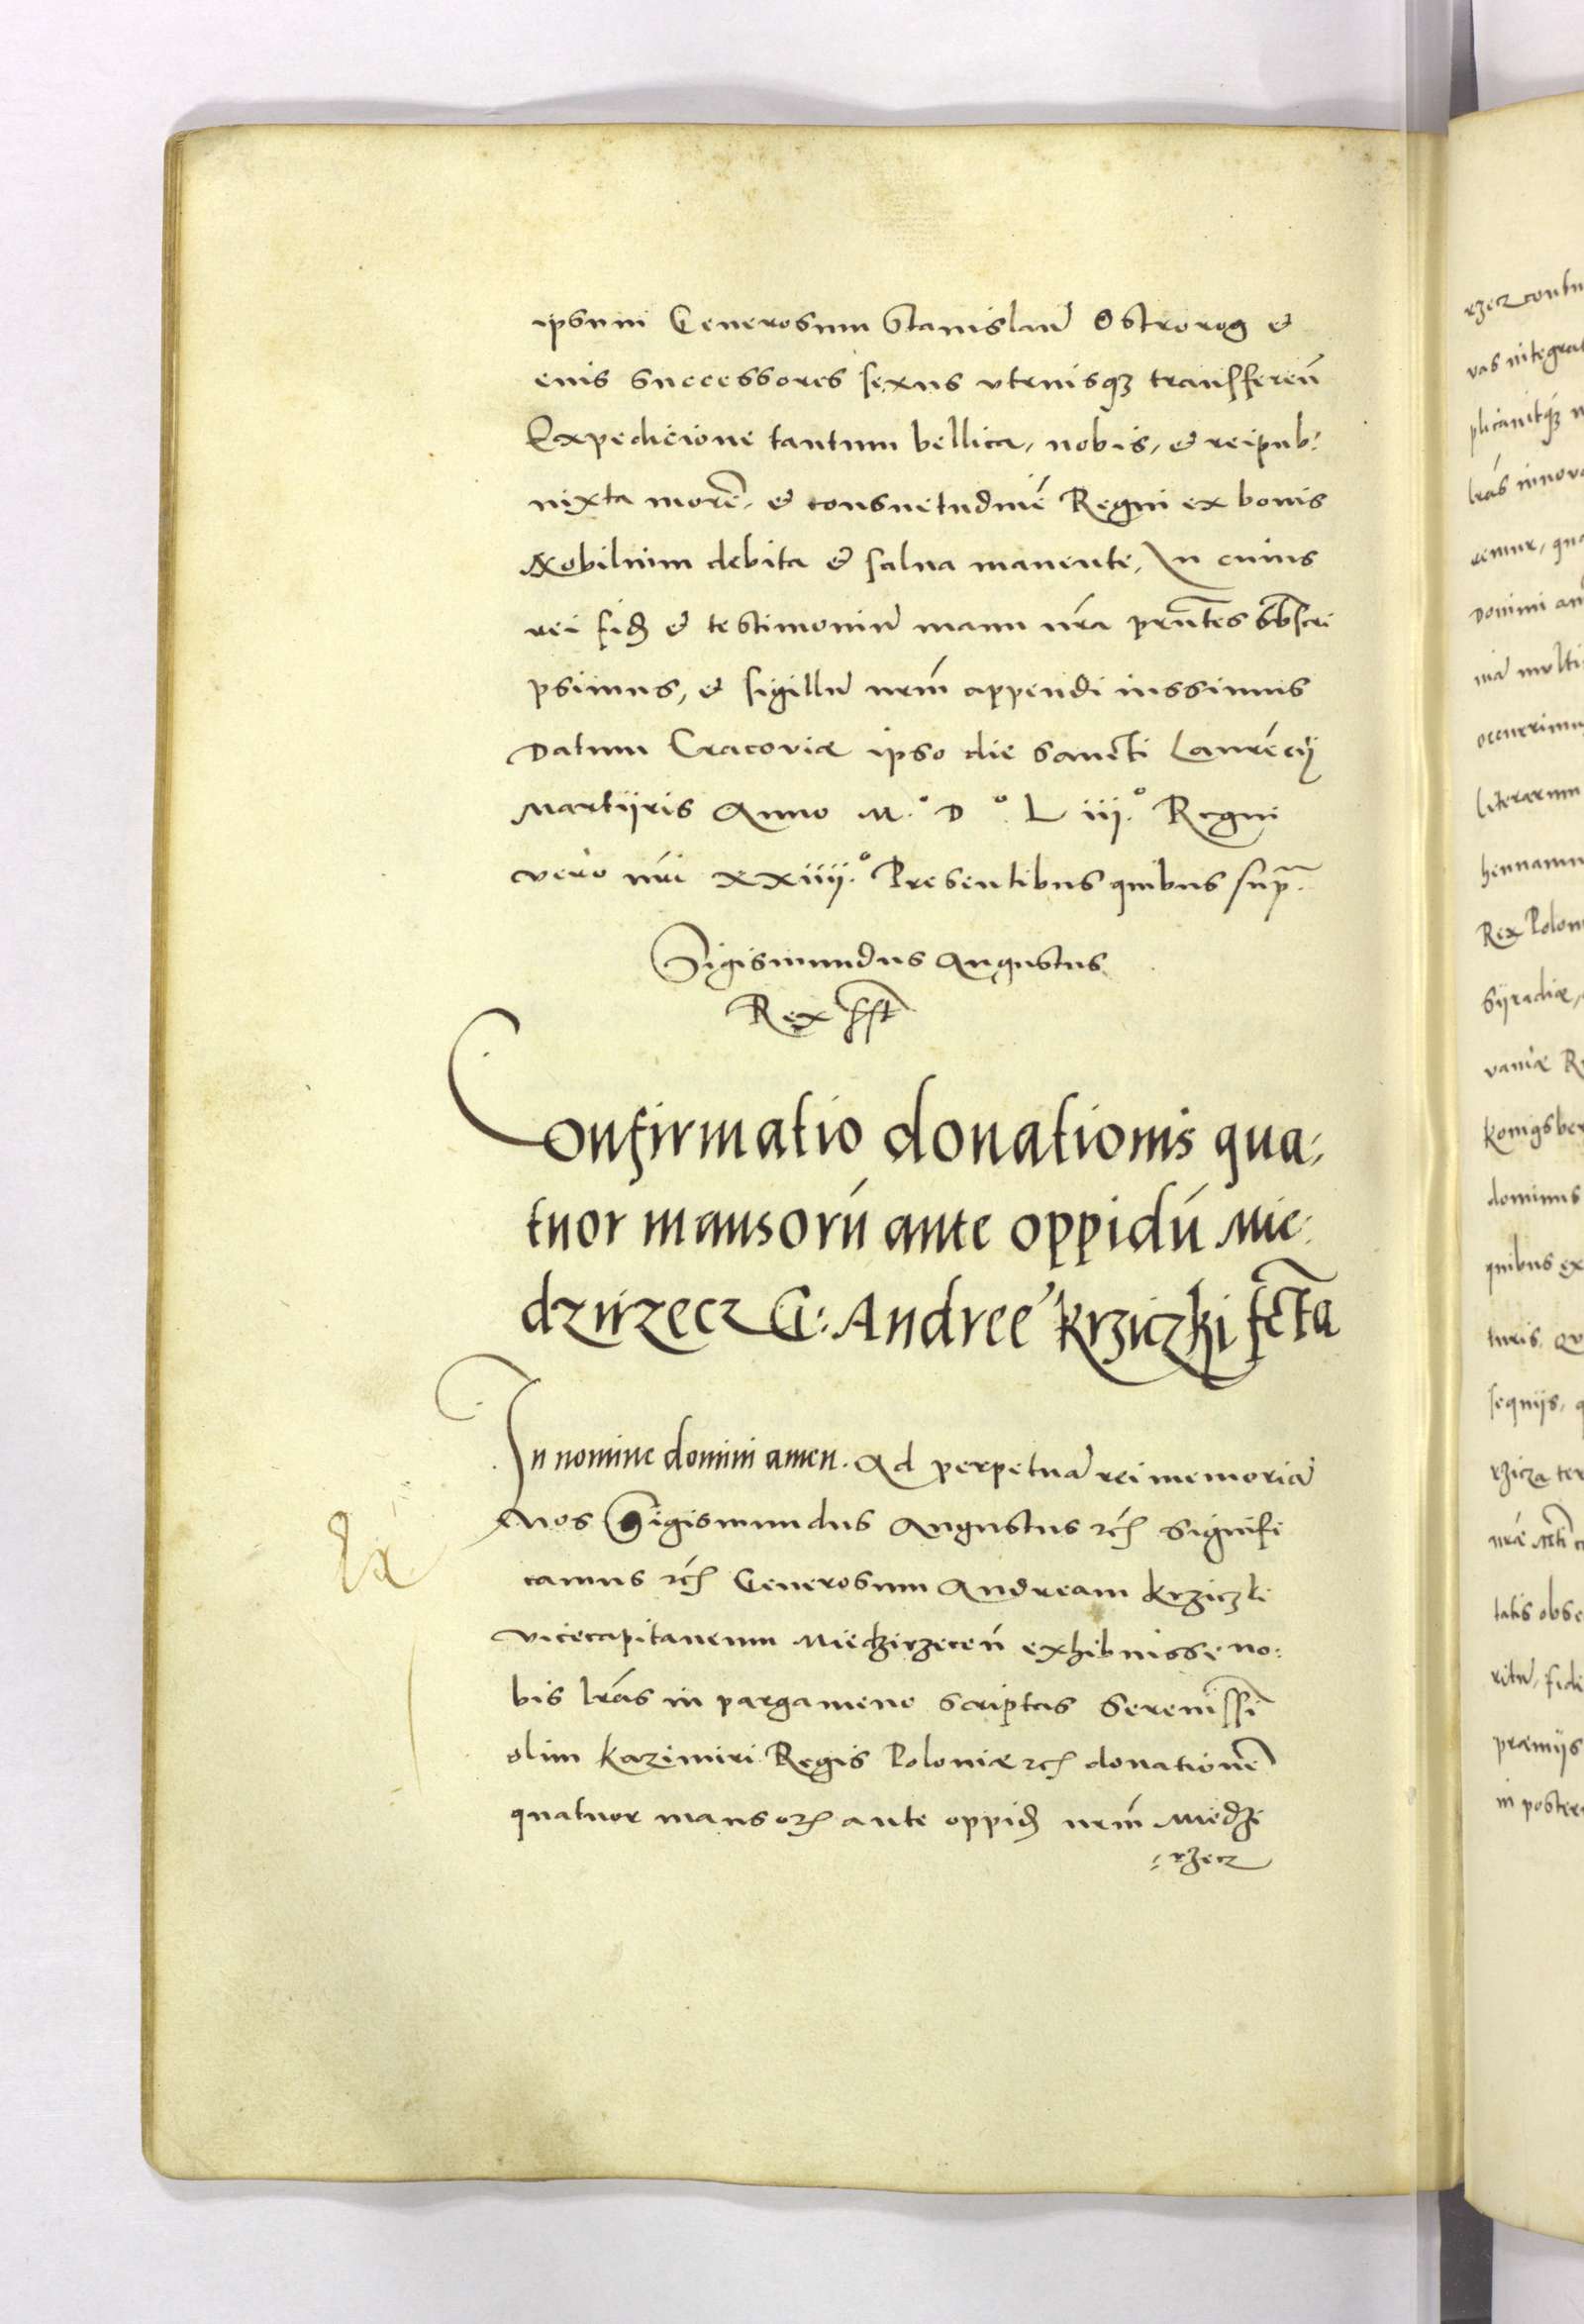 ipsum Generosum Stanislau͂ Ostrorog &
euis successores sexus vtruisqȝ transfferen͂
Expedicione tantum bellica, nobis, & reipub:
iuxta morē, & consuetudinē Regni ex bonis
Nobilium debita & salua manente, In cuius
rei fid̄ & testimoniu͂ manu nrā prn̄tes sb̄scri
psimus, & sigillu͂ nrm̄ appendi iussimus
Datum Cracoviæ ipso die Sancti Laurēcij
Martijris Anno M.° D.° L iij.° Regni
vero nrī xxiiij.° Presentibus quibus supͣ.
Sigismundus Augustus
Rex sst̄
Confirmatio donationis qua:
tuor mansorū ante oppidū Mie:
dzirzecz G: Andree krziczki fc̄ta
In nomine domini amen. Ad perpetua͂ rei memoria͂
Nos Sigismundus Augustus ⁊cꝭ Signifi
camus ⁊cꝭ Generosum Andream krziczki
vicecapitaneum Miedzirzecen͂ exhibuisse no:
bis lrās in pargameno scriptas Sereniss̄i
olim kazimiri Regis Poloniæ ⁊cꝭ donationē
quatuor mansoꝝ ante oppid̄ nrm̄ Miedzi
:rzecz
Ex
rzecz contu
vas integrat
plicauitqȝ
lrās innova
Domini an
multi
occurrimu
Literarum
hennanu
Rex Polon
Sijradiæ,
vaniæ R
konigsber
dominus
quibus ex
turis. Qu
sequijs,
rzicza ter
tatis obse
ritu͂, fidi
præmijs
in poster